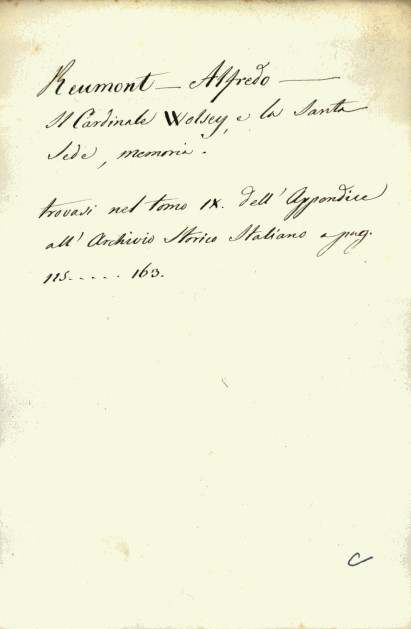 Reumont — Alfredo —
Il Cardinale Wolsey, e la Santa
Sede, memoria.
trovasi nel tomo IX. dell' Appendice
all' Archivio Storico Italiano a pag.
115..... 163.
C